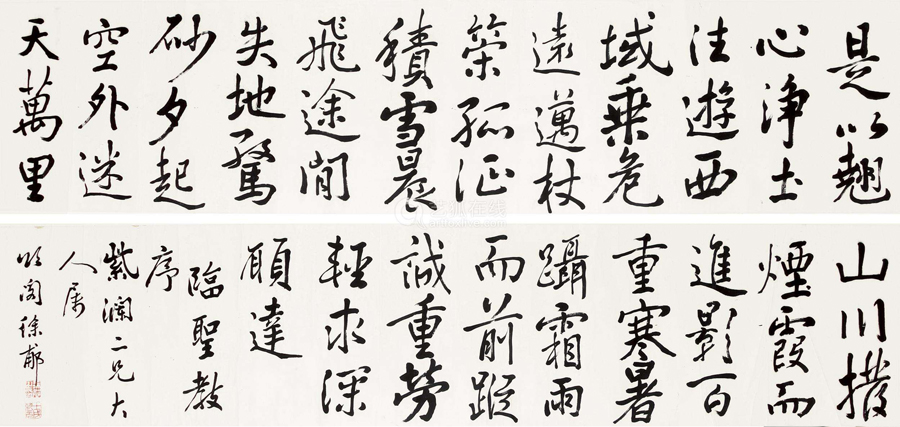 是以翹
心淨土
往遊西
域乗危
遠邁杖
策孤征
積雪晨
飛途閒
失地驚
砂夕起
空外迷
天萬里
山川撥
煙霞而
進影百
重寒暑
躡霜雨
而前蹤
誠重勞
輕求深
願達
臨聖教
序
紫瀾二兄大
人属
徐郙